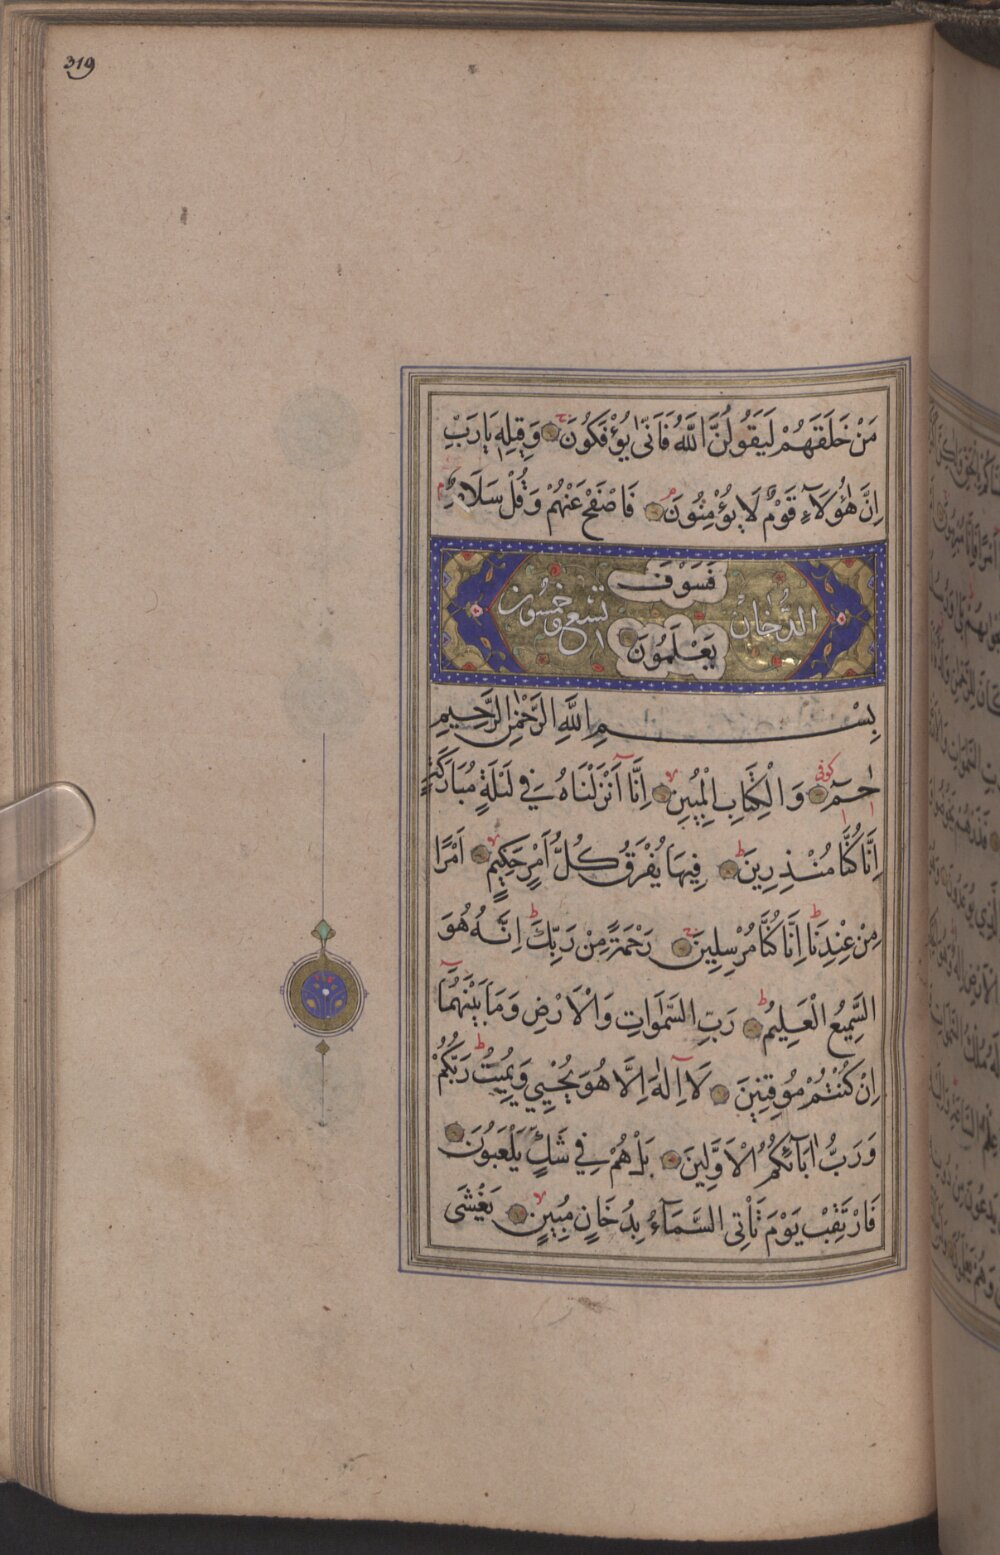 319
مَنْ خَلَقَهُمْ لَيَقُولُنَّ اللَّهُ فَاَنّٰى يُؤْفَكُونَ وَقِيلِهِ يَارَبِّ
اِنَّ هٰؤُلَآءِ قَوْمٌ لَا يُؤْمِنُونَ فَاصْفَحْ عَنْهُمْ وَقُلْ سَلَامٌ
فَسَوْفَ
الدُّخَانْ تسع وخمسون
يَعْلَمُونَ
بِسْمِ اللَّهِ الرَّحْمٰنِ الرَّحِيمِ
حٰمٓ كوفى وَالْكِتَابِ الْمُبِينِ اِنَّا اَنْزَلْنَاهُ فِي لَيْلَةٍ مُبَارَكَةٍ
اِنَّا كُنَّا مُنْذِرِينَ فِيهَا يُفْرَقُ كُلُّ اَمْرٍ حَكِيمٍ اَمْرًا
مِنْ عِنْدِنَا اِنَّا كُنَّا مُرْسِلِينَ رَحْمَةً مِنْ رَبِّكَ اِنَّهُ هُوَ
السَّمِيعُ الْعَلِيمُ رَبِّ السَّمٰوَاتِ وَالْاَرْضِ وَمَا بَيْنَهُمَآ
اِنْ كُنْتُمْ مُوقِنِينَ لَآ اِلٰهَ اِلَّا هُوَ يُحْيِي وَيُمِيتُ رَبُّكُمْ
وَرَبُّ اٰبَآئِكُمُ الْاَوَّلِينَ بَلْ هُمْ فِي شَكٍّ يَلْعَبُونَ
فَارْتَقِبْ يَوْمَ تَأْتِى السَّمَآءُ بِدُخَانٍ مُبِينٍ يَغْشَى